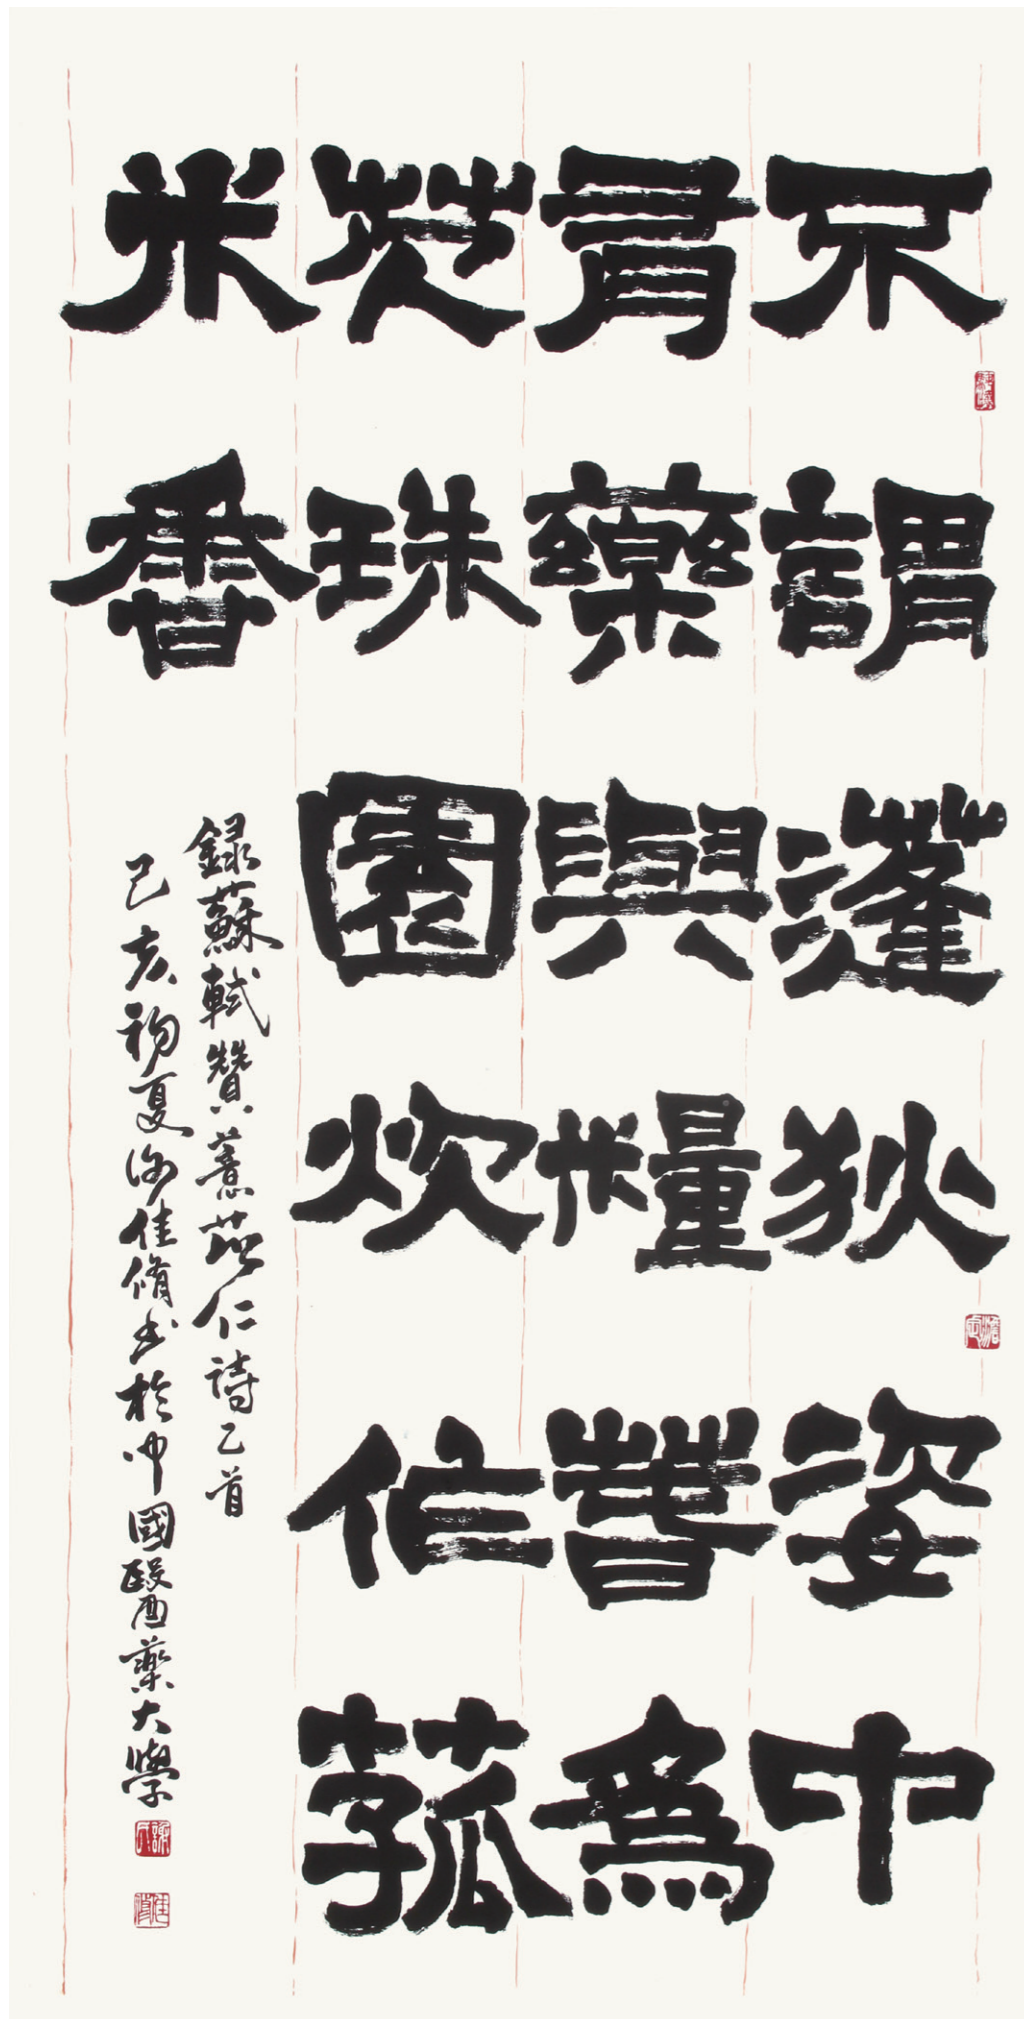 不謂蓬狄姿中
有藥與糧春爲
芡珠圜炊作菰
米香
録蘇軾贊薏苡仁詩乙首
己亥初夏謝佳脩書於中國醫藥大學